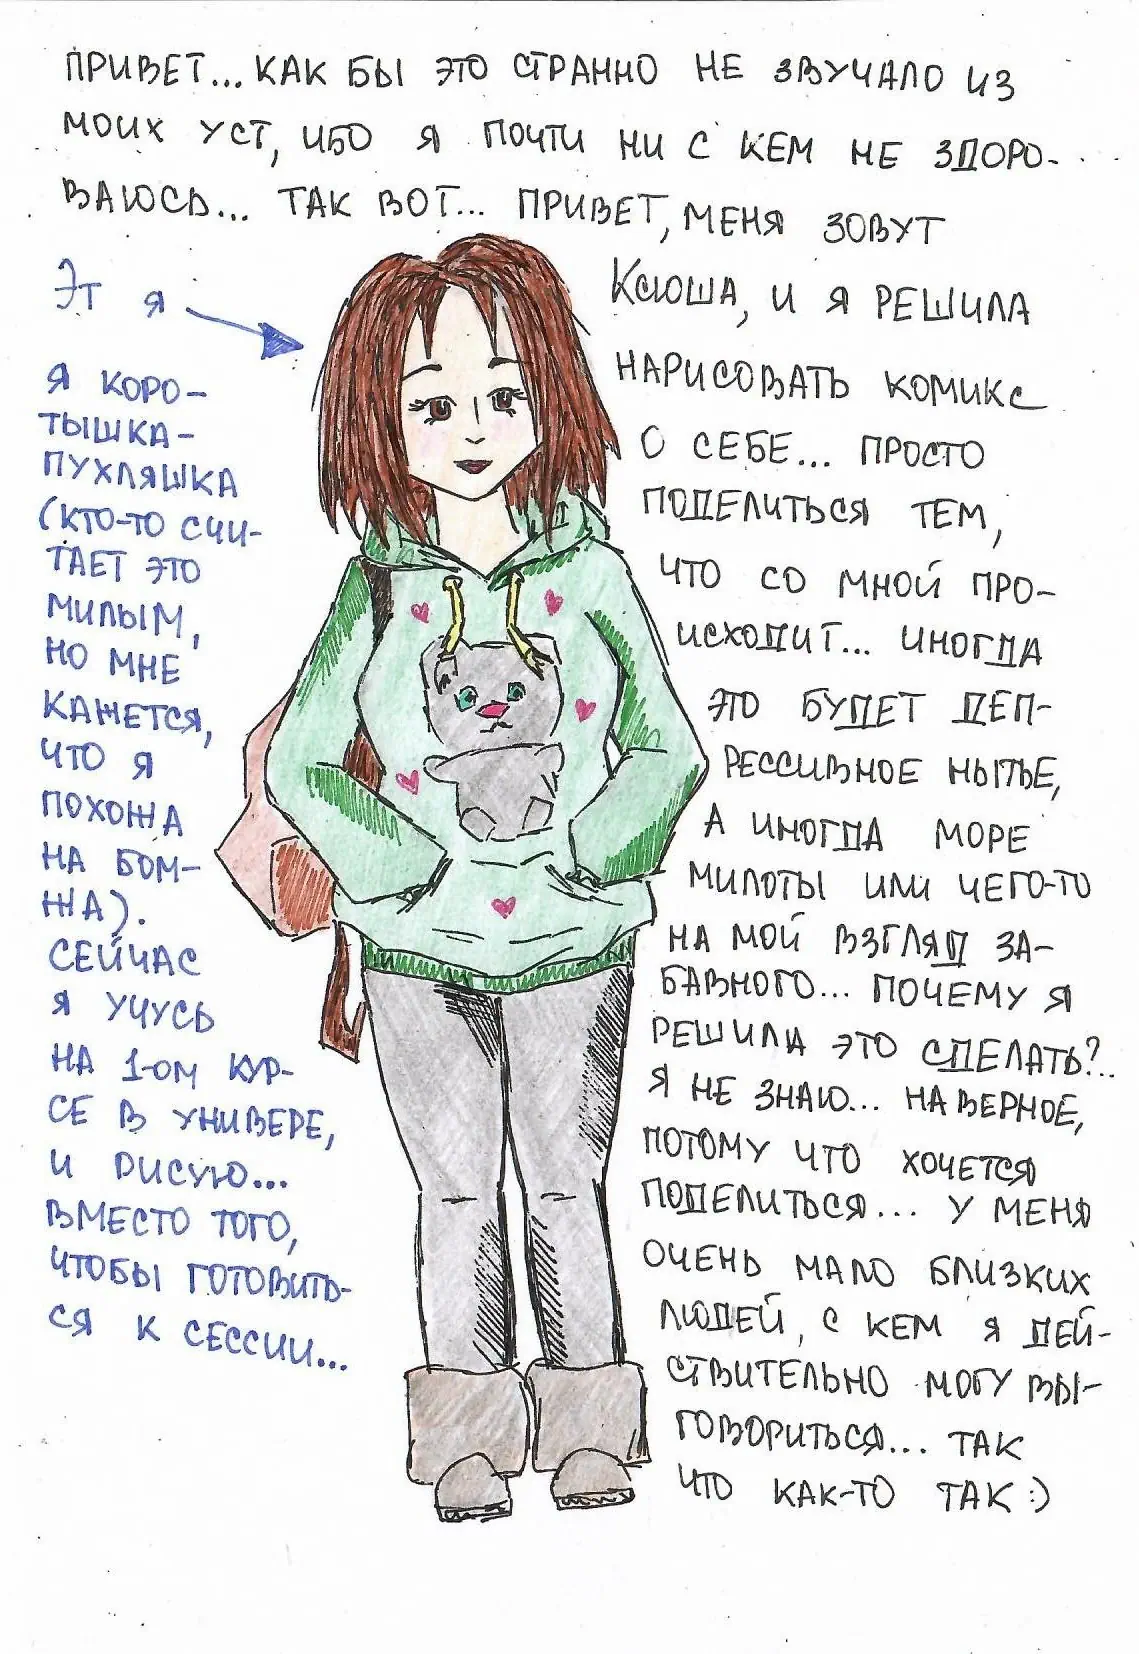 ПРИВЕТ... КАК БЫ ЭТО СТРАННО НЕ ЗВУЧАЛО ИЗ
МОИХ УСТ, ИБО Я ПОЧТИ НИ С КЕМ НЕ ЗДОРО-
ВАЮСЬ... ТАК ВОТ... ПРИВЕТ, МЕНЯ ЗОВУТ
КСЮША, И Я РЕШИЛА
НАРИСОВАТЬ КОМИКС
О СЕБЕ... ПРОСТО
ПОДЕЛИТЬСЯ ТЕМ,
ЧТО СО МНОЙ ПРО-
ИСХОДИТ... ИНОГДА
ЭТО БУДЕТ ДЕП-
РЕССИВНОЕ НЫТЬЕ,
А ИНОГДА МОРЕ
МИЛОТЫ ИЛИ ЧЕГО-ТО
НА МОЙ ВЗГЛЯД ЗА-
БАВНОГО... ПОЧЕМУ Я
РЕШИЛА ЭТО СДЕЛАТЬ?..
Я НЕ ЗНАЮ... НАВЕРНОЕ,
ПОТОМУ ЧТО ХОЧЕТСЯ
ПОДЕЛИТЬСЯ... У МЕНЯ
ОЧЕНЬ МАЛО БЛИЗКИХ
ЛЮДЕЙ, С КЕМ Я ДЕЙ-
СТВИТЕЛЬНО МОГУ ВЫ-
ГОВОРИТЬСЯ... ТАК
ЧТО КАК-ТО ТАК :)
ЭТ Я
Я КОРО-
ТЫШКА-
ПУХЛЯШКА
(КТО-ТО СЧИ-
ТАЕТ ЭТО
МИЛЫМ,
НО МНЕ
КАЖЕТСЯ,
ЧТО Я
ПОХОЖА
НА БОМ-
ЖА).
СЕЙЧАС
Я УЧУСЬ
НА 1-ОМ КУР-
СЕ В УНИВЕРЕ,
И РИСУЮ...
ВМЕСТО ТОГО,
ЧТОБЫ ГОТОВИТЬ-
СЯ К СЕССИИ...